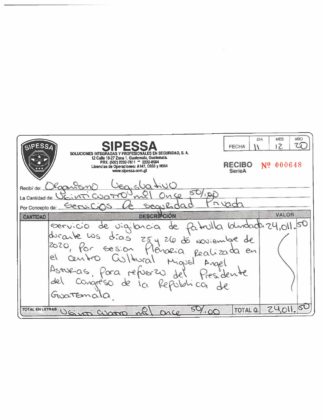 SIPESSA
SIPESSA
SOLUCIONES INTEGRADAS Y PROFESIONALES EN SEGURIDAD, S. A.
12 Calle 10-27 Zona 1 Guatemala, Guatemala.
www.sipessa.com.gt
FECHA
DIA MES AÑO
11 12 20
RECIBO Nº 000648
Serie A
Recibí de: Organismo Legislativo
La Cantidad de: Veinticuatro mil once 50/00
Por Concepto de: Servicios De Seguridad Privada
CANTIDAD DESCRIPCIÓN VALOR
Servicio de vigilancia de Patrulla blindada 24,011.50
durante los días 25 y 26 de noviembre de
2020, Por sesion Plenaria Realizada en
el centro Cultural Miguel Angel
Asturias, Para refuerzo del Presidente
del Congreso de la Republica de
Guatemala.
TOTAL EN LETRAS: Veinticuatro mil once 50/00 TOTAL Q. 24,011.50